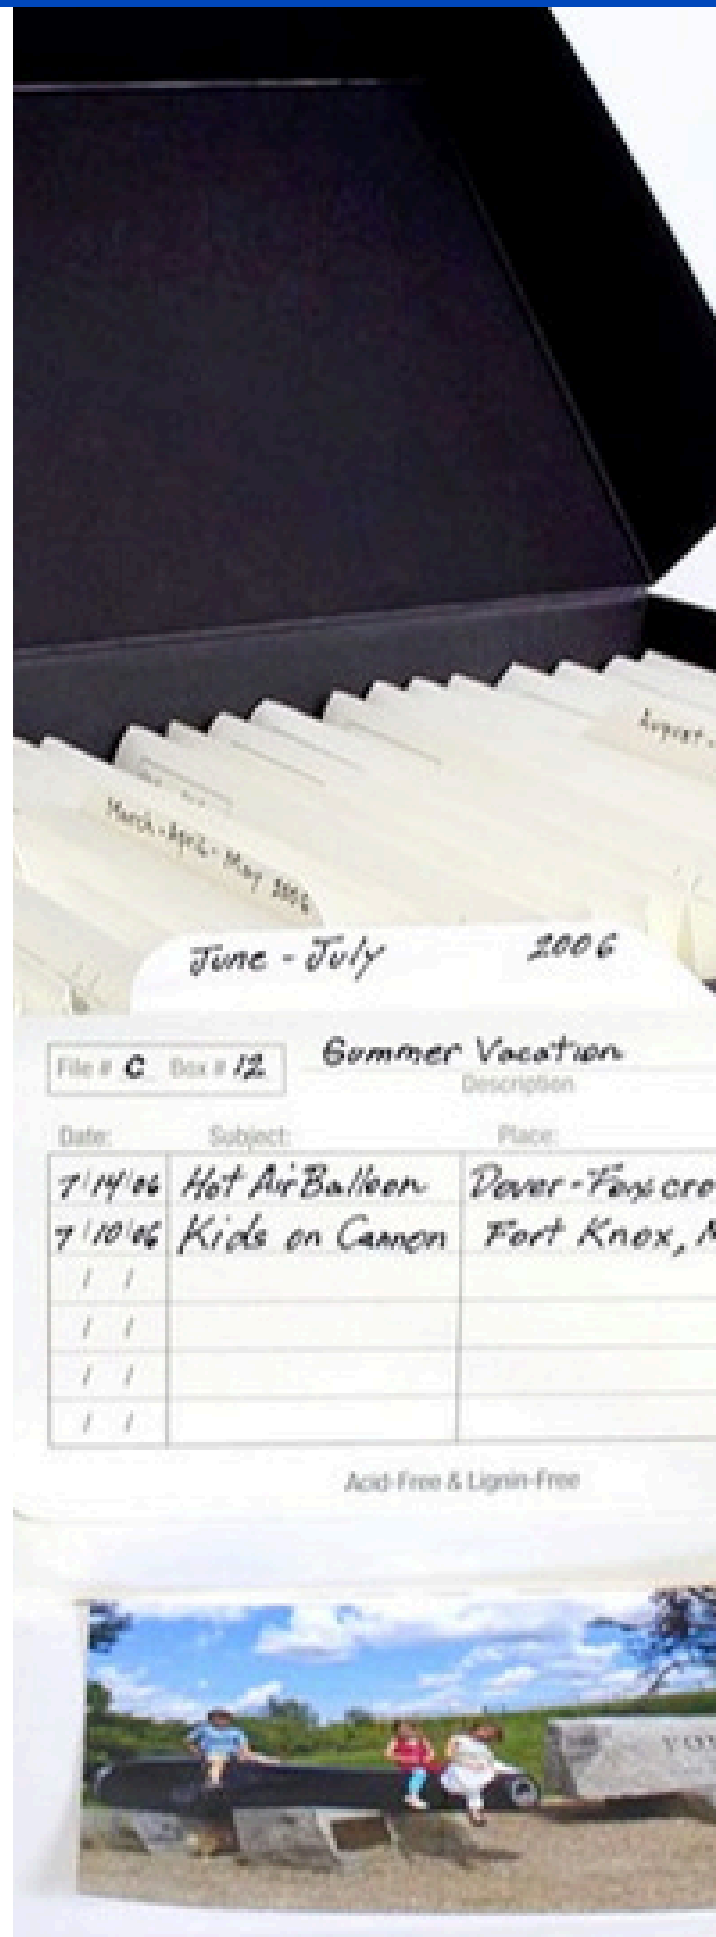 August -
March - April - May 2006
June - July 2006
File # C Box # 12 Summer Vacation
Description
Date: Subject: Place:
7/14/06 Hot Air Balloon Dover - Foxcro
7/10/06 Kids on Cannon Fort Knox, M
/ /
/ /
/ /
/ /
Acid-Free & Lignin-Free